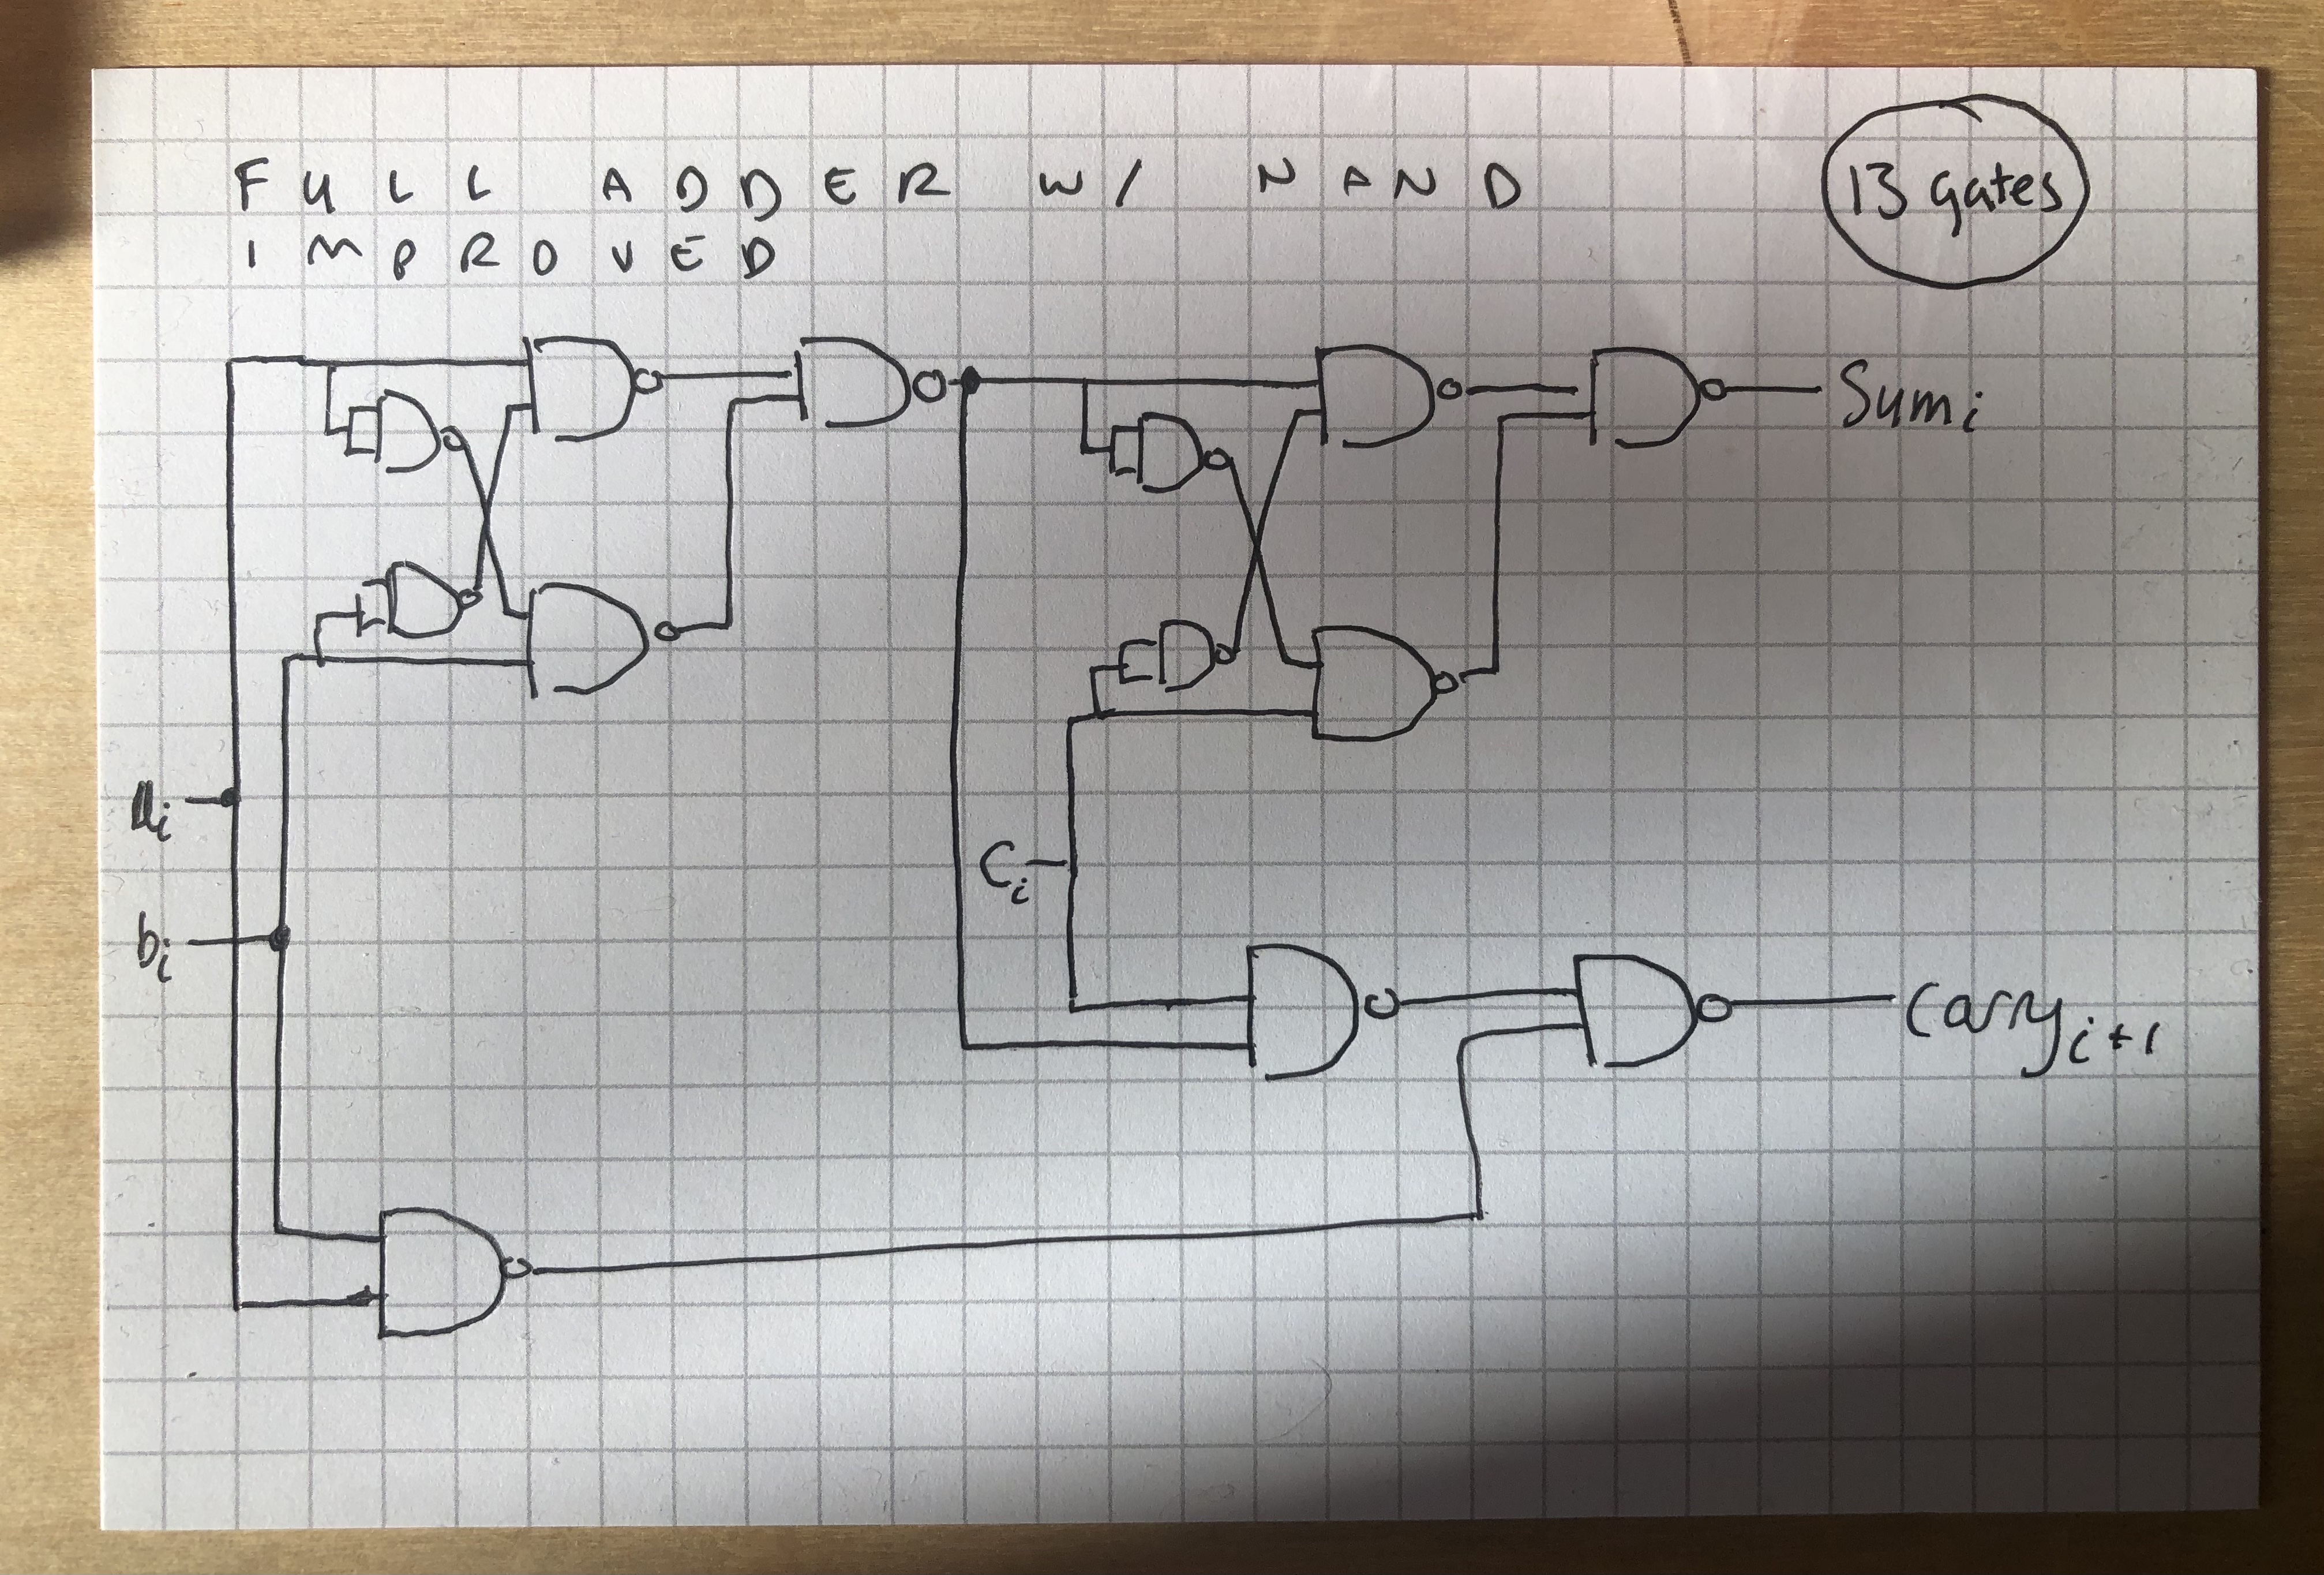 FULL ADDER W/ NAND
IMPROVED
13 gates
Sumi
ai
Ci
bi
Carryi+1